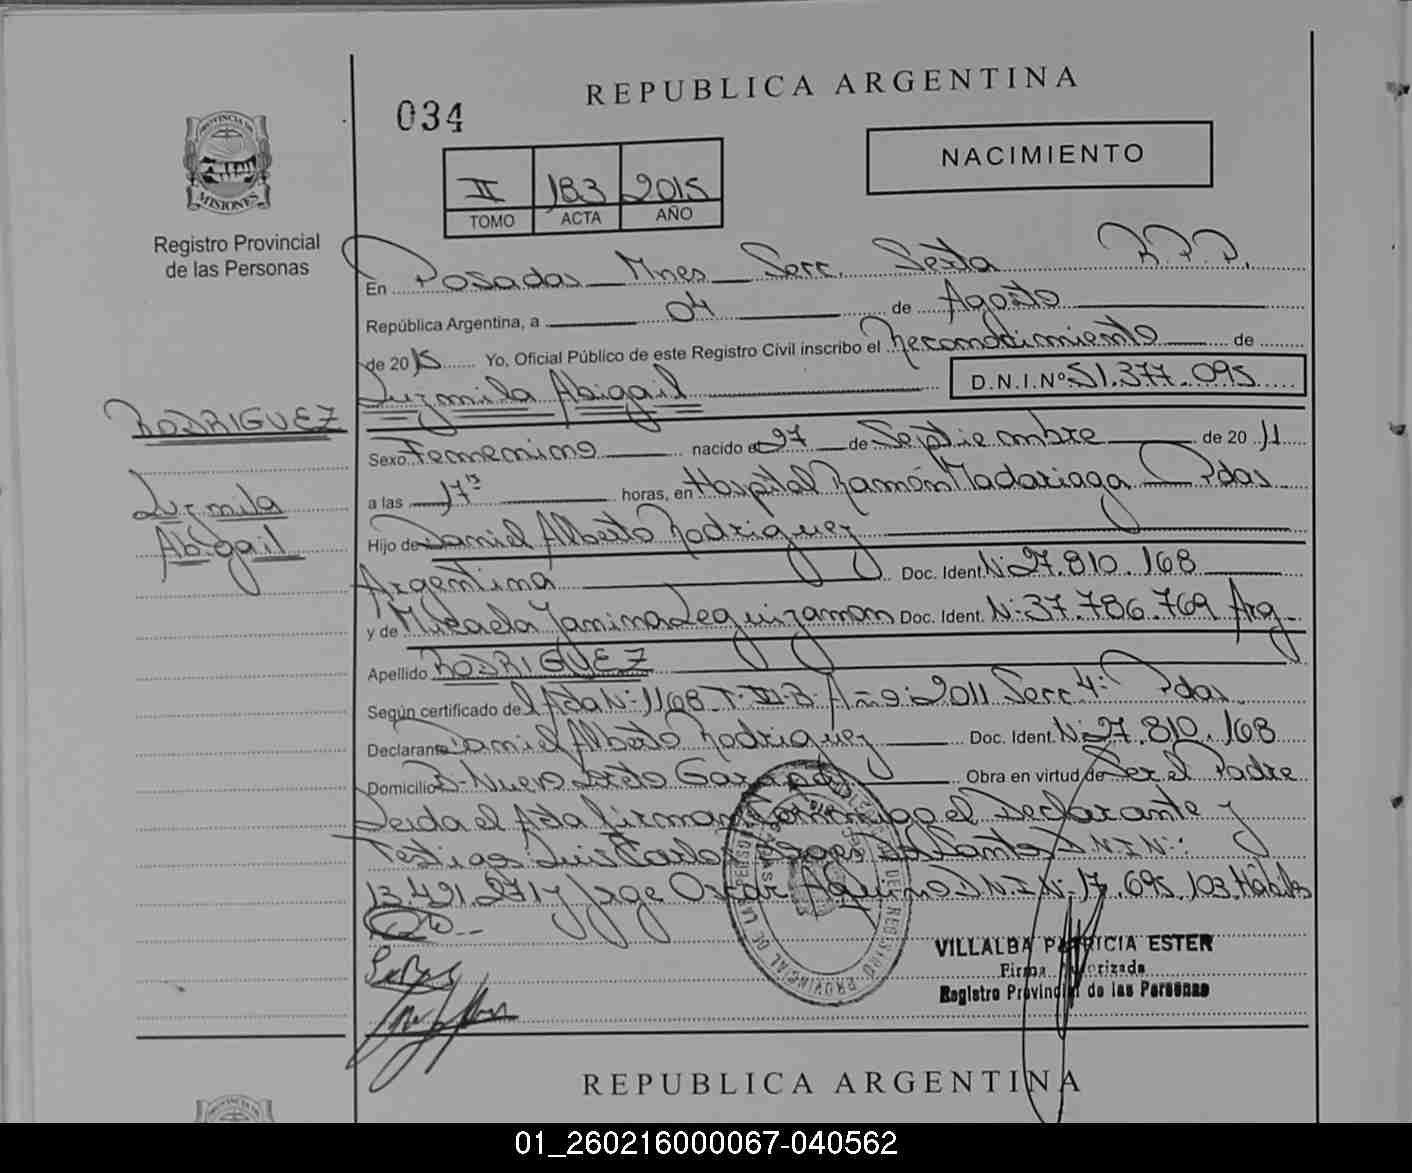 REPUBLICA ARGENTINA
034
NACIMIENTO
II 183 2015
TOMO ACTA AÑO
PROVINCIA DE
MISIONES
Registro Provincial
de las Personas
RODRIGUEZ
Luzmila
Abigail
En Posadas Mnes Secc. Sexta R.P.P.
República Argentina, a 04 de Agosto
de 2015 Yo, Oficial Público de este Registro Civil inscribo el Reconocimiento de
Luzmila Abigail D.N.I.Nº 51.377.095
Sexo Femenino nacido el 27 de Septiembre de 2011
a las 17 horas, en Hospital Ramón Madariaga Pdas
Hijo de Daniel Alberto Rodriguez
Argentina Doc. Ident. Nº 27.810.168
y de Micaela Yanina Leguizamon Doc. Ident. Nº 37.786.769 Arg
Apellido RODRIGUEZ
Según certificado del Acta Nº 1168 T. III B Año 2011 Secc 4º Pdas
Declarante Daniel Alberto Rodriguez Doc. Ident. Nº 27.810.168
Domicilio Bº Nuevo Garupá Obra en virtud de Ser el Padre
Leida el Acta firman Conmigo el Declarante y
Testigos Luis Carlos Dos Santos D.N.I.Nº:
13.491.271 y Jorge Oscar Aquino D.N.I.Nº 17.695.103 Hábiles
VILLALBA PATRICIA ESTER
Firma Autorizada
Registro Provincial de las Personas
REPUBLICA ARGENTINA
01_260216000067-040562